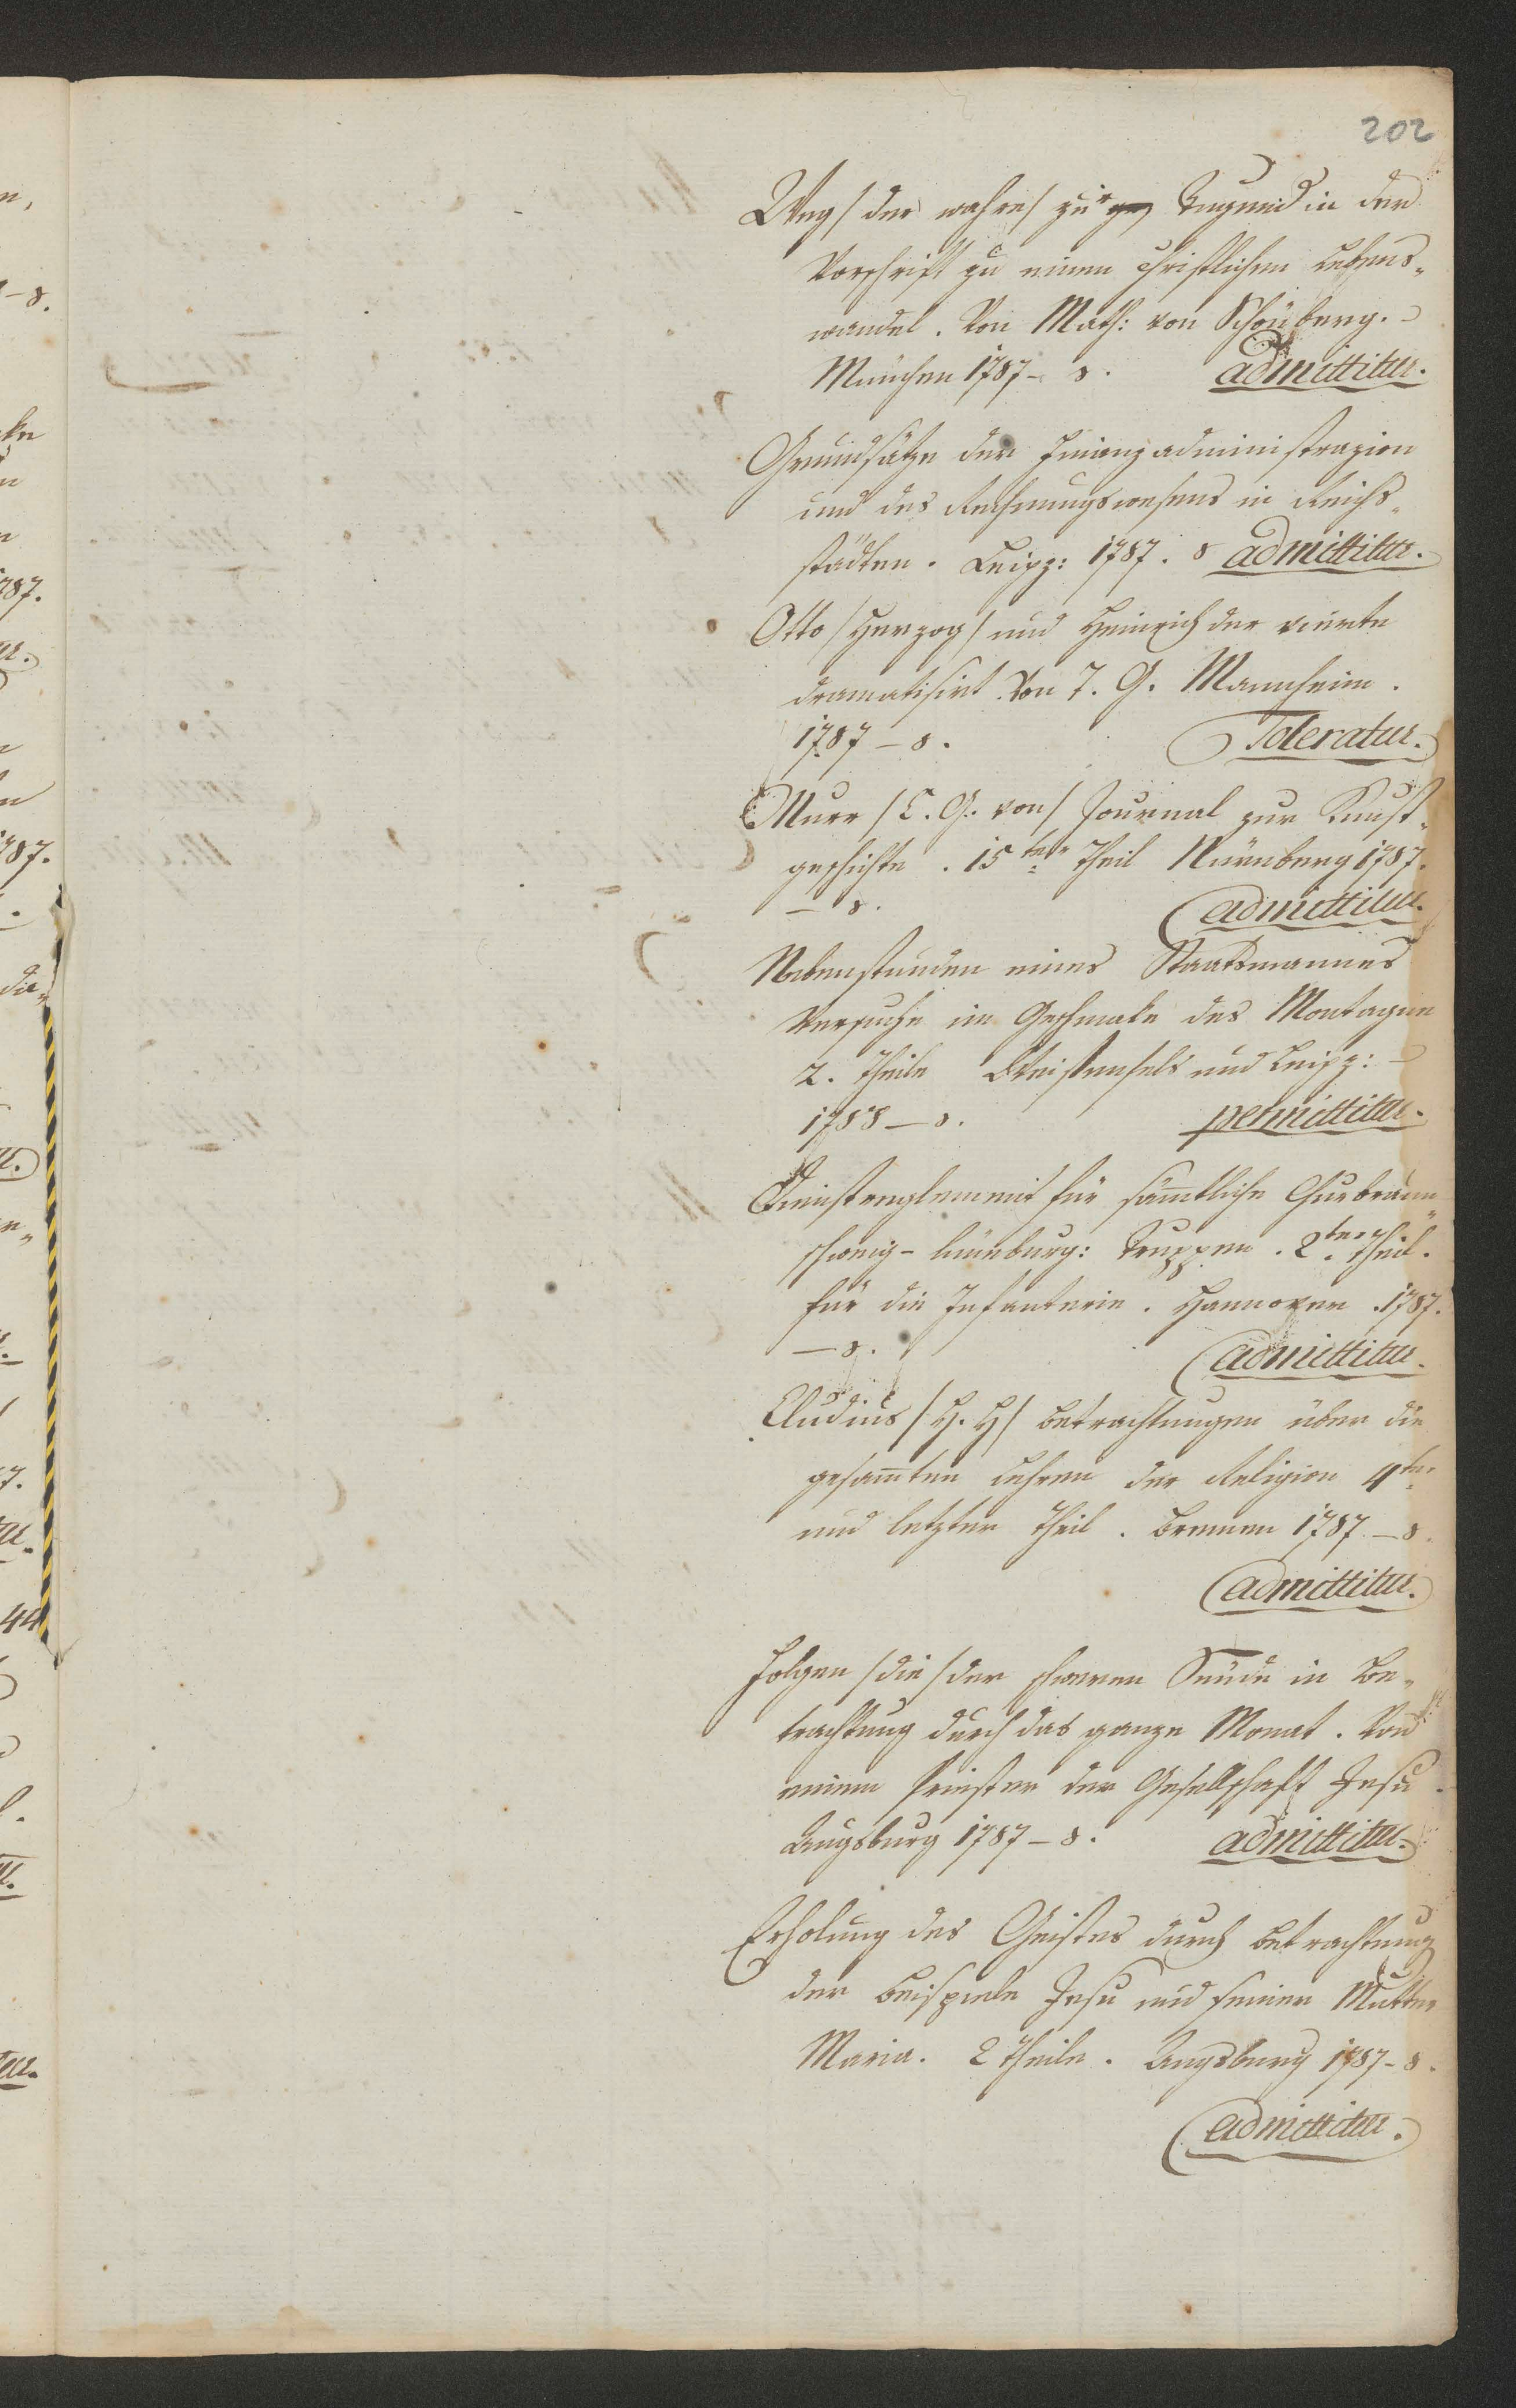 202
Weg / der wahre / zur Tugend in der
Vorschrift zu einem christlichen Lebens„
wandel. Von Math: von Schönberg.
München 1787 – 8. admittitur.
Grundsätze der Finanzadministrazion
und des Rechnungswesens in Reichs„
städten. Leipz: 1787. 8 admittitur.
Otto / Herzog / und Heinrich der vierte
dramatisirt. Von T. G. Mannheim.
1787 – 8. Toleratur.
Murr / C. G. von / Journal zur Kunst„
geschichte. 15ter Theil Nürnberg 1787.
– 8. admittitur.
Nebenstunden eines Staatsmannes
Versuche im Geschmake des Montagne
2. Theile Weissenfels und Leipz:
1788 – 8. permittitur.
Dienstreglement für säm̄tliche Churbraun„
schweig-lüneburg: Truppen. 2ter Theil.
für die Infanterie. Hannover. 1787.
– 8. admittitur.
Cludius / H. H / Betrachtungen über die
gesam̄ten Lehren der Religion 4ter
und letzter Theil. Bremen 1787 – 8.
admittitur.
Folgen / die / der schweren Sünde in Be„
trachtung durch das ganze Monat. Von
einem Priester der Gesellschaft Jesu.
Augsburg 1787 – 8. admittitur.
Erholung des Geistes durch Betrachtung
der Beispiele Jesu und seiner Mutter
Maria. 2 Theile. Augsburg 1787 – 8.
admittitur.